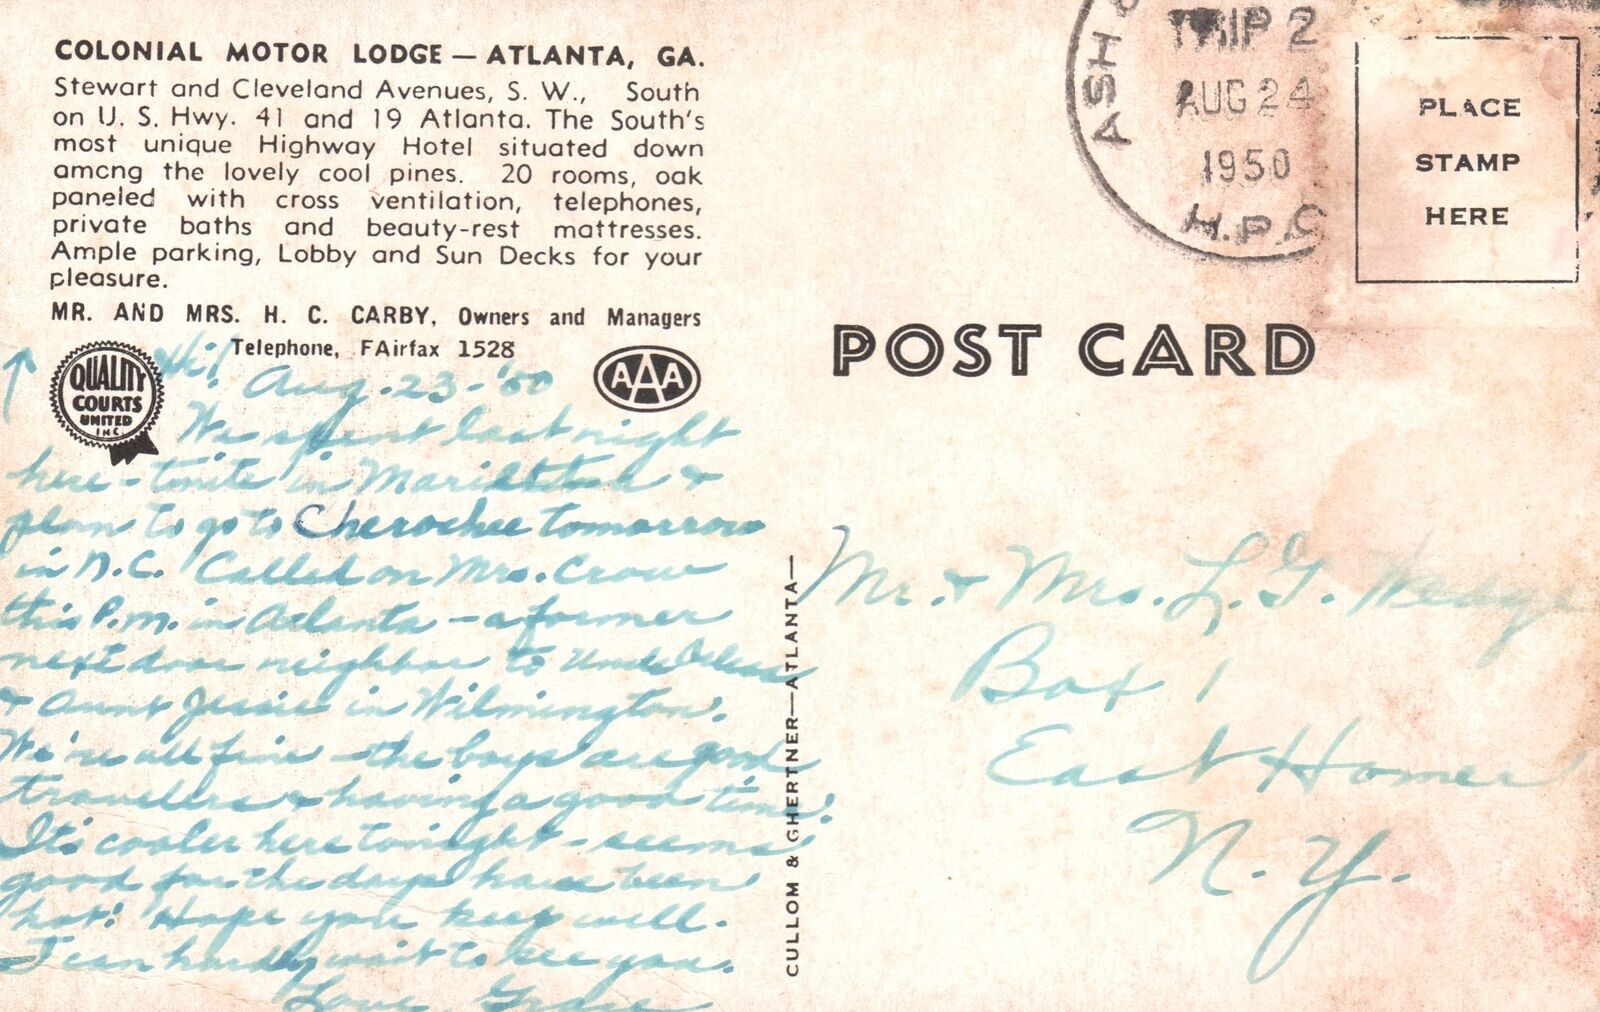 COLONIAL MOTOR LODGE — ATLANTA, GA.
Stewart and Cleveland Avenues, S. W., South
on U. S. Hwy. 41 and 19 Atlanta. The South's
most unique Highway Hotel situated down
among the lovely cool pines. 20 rooms, oak
paneled with cross ventilation, telephones,
private baths and beauty-rest mattresses.
Ample parking, Lobby and Sun Decks for your
pleasure.
MR. AND MRS. H. C. CARBY, Owners and Managers
Telephone, FAirfax 1528
QUALITY
COURTS
UNITED
INC.
AAA
Hi!
Aug. 23 - '50
We spent last night
here - tonite in Marietta &
plan to go to Cherochee tomorrow
in N.C. Called on Mrs. Crow
this P.m. in Atlanta - a former
next door neighbor to Uncle
& Aunt Jessie in Wilmington.
We're all fine - the boys are good
travelers & having a good time!
It's cooler here tonight - seems
good for the days have been
hot! Hope you keep well.
I can hardly wait to see you.
Love, Grace
CULLOM & GHERTNER—ATLANTA—
ASH &
TRIP 2
AUG 24
1950
H.P.O
PLACE
STAMP
HERE
POST CARD
Mr. & Mrs. L. G.
Box 1
East Homer
N. Y.